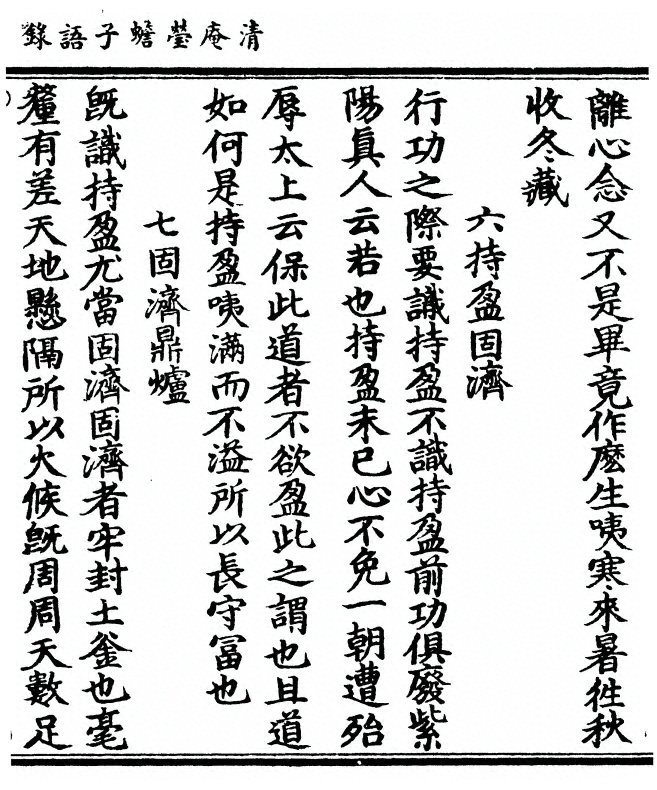 清庵瑩蟾子語錄
離心念又不是畢竟作麽生咦寒來暑徃秋
收冬藏
六持盈固濟
行功之際要識持盈不識持盈前功俱廢紫
陽眞人云若也持盈未已心不免一朝遭殆
辱太上云保此道者不欲盈此之謂也且道
如何是持盈咦滿而不溢所以長守冨也
七固濟鼎爐
旣識持盈尤當固濟固濟者牢封土釜也毫
釐有差天地懸隔所以火候旣周周天數足